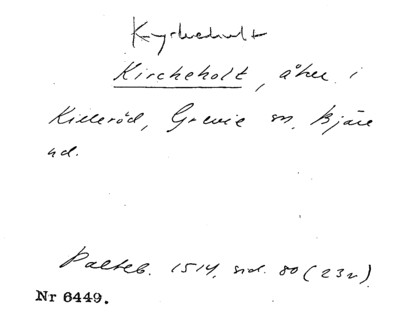 Kyrkeholt
Kircheholt, åker i
Killeröd, Grevie sn, Bjäre
hd.
Palteb. 1514, sid. 80 (23v).
Nr 6449.